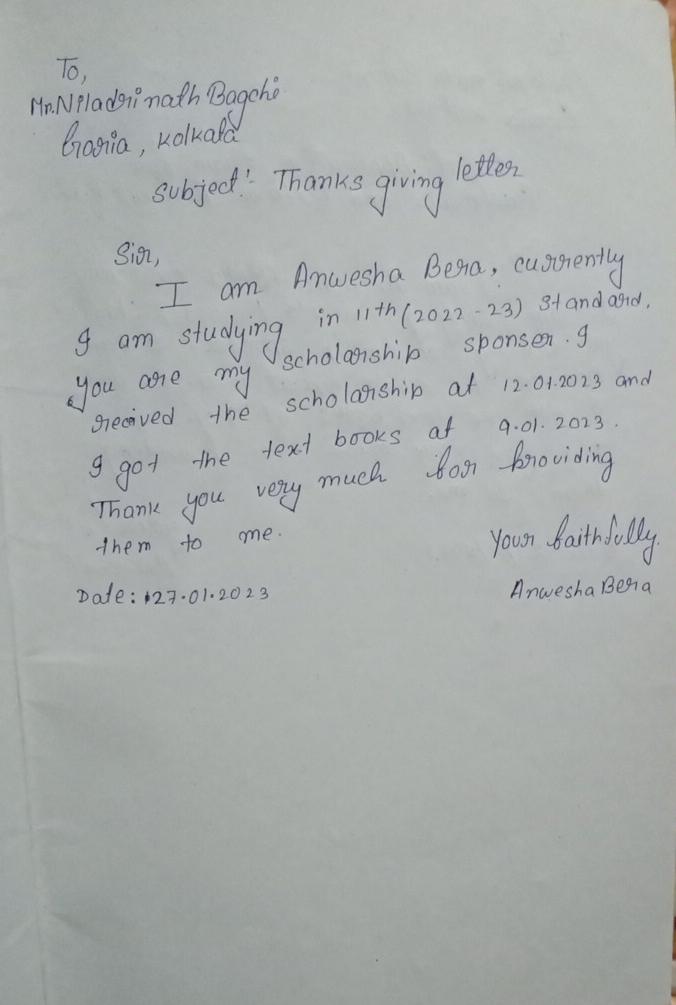 To,
Mr. Niladri nath Bagchi
Garia, Kolkata
Subject:- Thanks giving letter
Sir,
I am Anwesha Bera, currently
I am studying in 11th (2022-23) standard.
You are my scholarship sponser. I
recived the scholarship at 12.01.2023 and
I got the text books at 9.01.2023.
Thank you very much for providing
them to me.
Your faithfully.
Date: 27.01.2023 Anwesha Bera